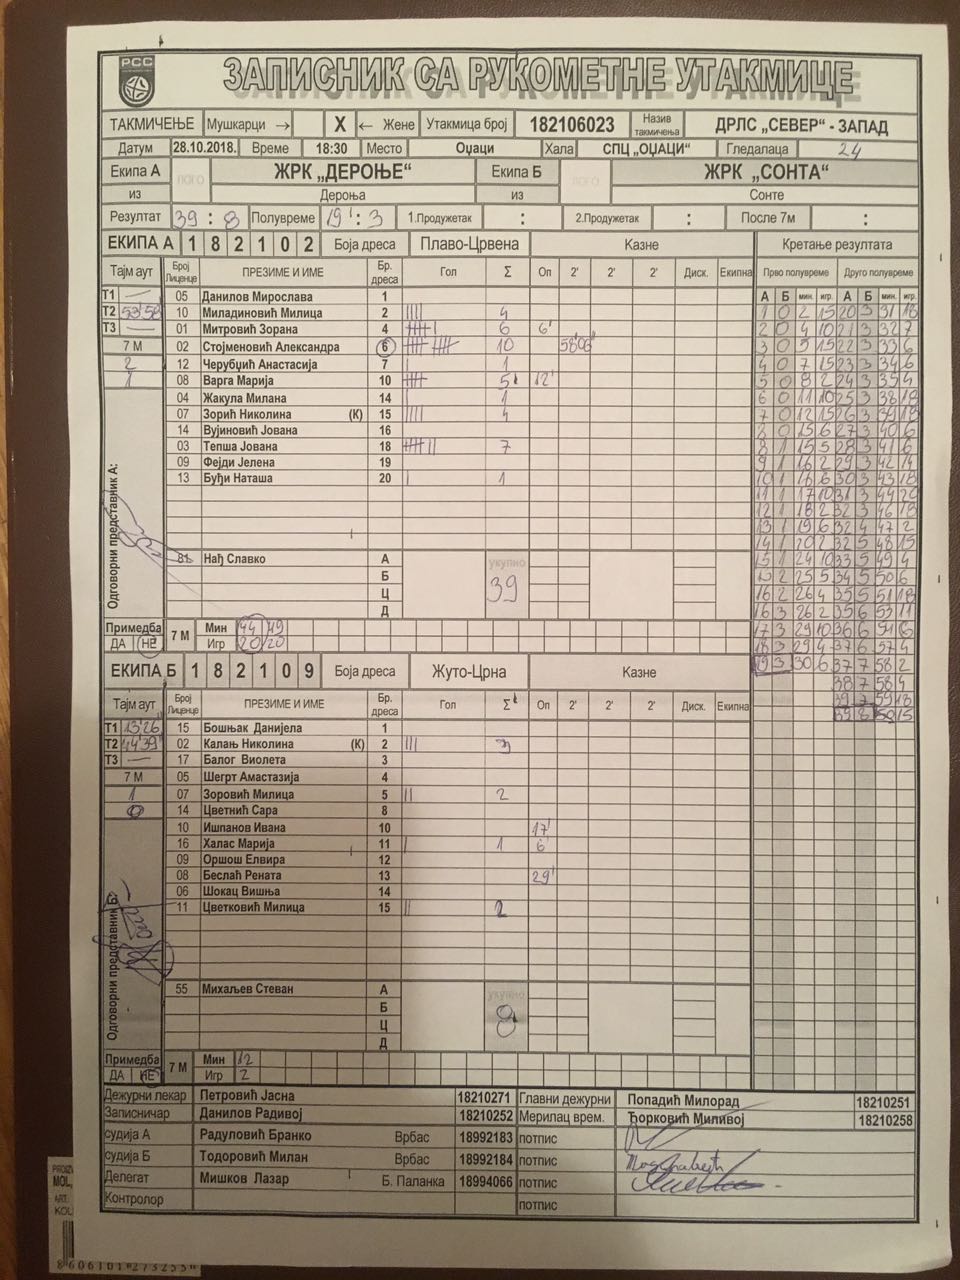 РСС
ЗАПИСНИК СА РУКОМЕТНЕ УТАКМИЦЕ
ТАКМИЧЕЊЕ Мушкарци → X ← Жене Утакмица број 182106023 Назив такмичења ДРЛС „СЕВЕР“ - ЗАПАД
Датум 28.10.2018. Време 18:30 Место Оџаци Хала СПЦ „ОЏАЦИ“ Гледалаца 24
Екипа А ЛОГО ЖРК „ДЕРОЊЕ“ Екипа Б ЛОГО ЖРК „СОНТА“
из Дероња из Сонте
Резултат 39 : 8 Полувреме 19 : 3 1.Продужетак : 2.Продужетак : После 7м :
ЕКИПА А 1 8 2 1 0 2 Боја дреса Плаво-Црвена Казне Кретање резултата
Тајм аут Број Лиценце ПРЕЗИМЕ И ИМЕ Бр. дреса Гол Σ Оп 2' 2' 2' Диск. Екипна Прво полувреме Друго полувреме
А Б мин. игр. А Б мин. игр.
Т1 — 05 Данилов Мирослава 1
Т2 53'58 10 Миладиновић Милица 2 |||| 4
Т3 — 01 Митровић Зорана 4 6 6'
7 М 02 Стојменовић Александра 6 10 58'06"
2 12 Черубџић Анастасија 7 | 1
1 08 Варга Марија 10 5 12'
04 Жакула Милана 14 | 1
07 Зорић Николина (К) 15 |||| 4
14 Вујиновић Јована 16
03 Тепша Јована 18 7
09 Фејди Јелена 19
13 Буђи Наташа 20 | 1
Одговорни представник А:
81 Нађ Славко А
Б
Ц
Д
укупно
39
Примедба ДА НЕ 7 М Мин 44 49
Игр 20 20
1 0 2 15 20 3 31 18
2 0 4 10 21 3 32 7
3 0 5 15 22 3 33 6
4 0 7 15 23 3 34 6
5 0 8 2 24 3 35 4
6 0 11 10 25 3 38 18
7 0 12 15 26 3 39 18
8 0 15 6 27 3 40 6
8 1 15 5 28 3 41 6
9 1 16 2 29 3 42 14
10 1 16 6 30 3 43 18
11 1 17 10 31 3 44 20
12 1 18 2 32 3 46 18
13 1 19 6 32 4 47 2
14 1 20 2 32 5 48 15
15 1 24 10 33 5 49 4
2 25 5 34 5 50 6
16 2 26 4 35 5 51 18
16 3 26 2 35 6 53 11
17 3 29 10 36 6 6
18 3 29 4 37 6 57 4
19 3 30 6 37 7 58 2
38 7 58 4
39 7 59 18
39 8 15
ЕКИПА Б 1 8 2 1 0 9 Боја дреса Жуто-Црна Казне
Тајм аут Број Лиценце ПРЕЗИМЕ И ИМЕ Бр. дреса Гол Σ Оп 2' 2' 2' Диск. Екипна
Т1 13'26 15 Бошњак Данијела 1
Т2 44'39 02 Калањ Николина (К) 2 ||| 3
Т3 — 17 Балог Виолета 3
7 М 05 Шегрт Амастазија 4
1 07 Зоровић Милица 5 || 2
0 14 Цветнић Сара 8
10 Ишпанов Ивана 10 17'
16 Халас Марија 11 | 1 6'
09 Оршош Елвира 12
08 Беслаћ Рената 13 29'
06 Шокац Вишња 14
11 Цветковић Милица 15 || 2
Одговорни представник Б:
55 Михаљев Стеван А
Б
Ц
Д
укупно
8
Примедба ДА НЕ 7 М Мин 12
Игр 2
Дежурни лекар Петровић Јасна 18210271 Главни дежурни Попадић Милорад 18210251
Записничар Данилов Радивој 18210252 Мерилац врем. Ђорковић Миливој 18210258
судија А Радуловић Бранко Врбас 18992183 потпис
судија Б Тодоровић Милан Врбас 18992184 потпис
Делегат Мишков Лазар Б. Паланка 18994066 потпис
Контролор потпис
MOL,
ART.
KOL
8606101273255